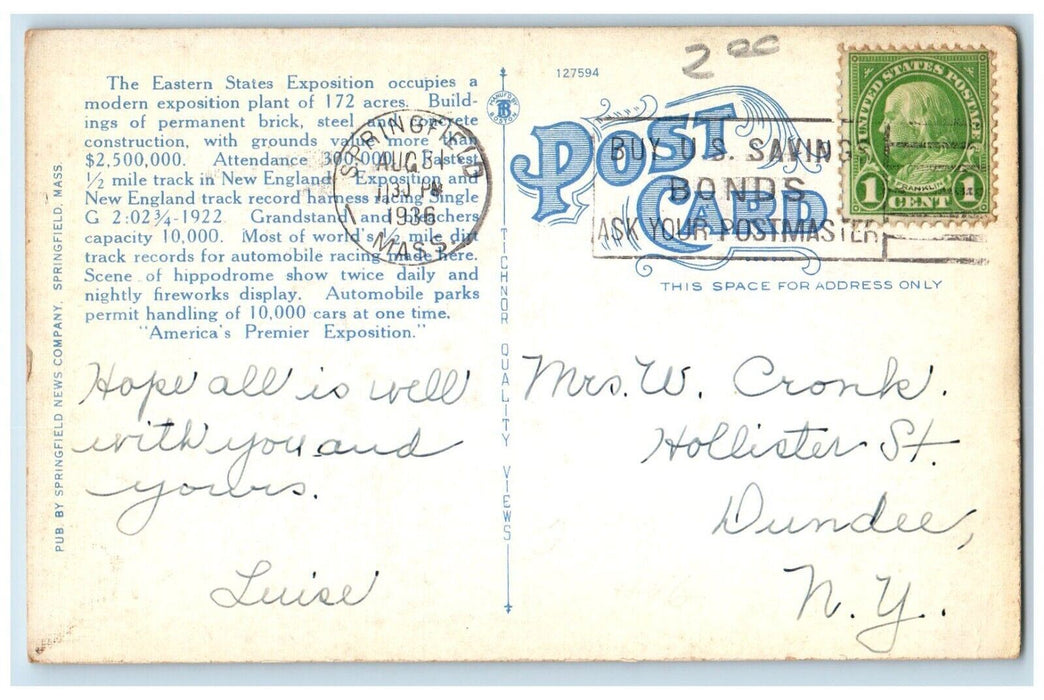 The Eastern States Exposition occupies a
modern exposition plant of 172 acres. Build-
ings of permanent brick, steel and concrete
construction, with grounds value more than
$2,500,000. Attendance 300,000. Fastest
½ mile track in New England. Exposition and
New England track record harness racing Single
G 2:02¾-1922. Grandstand and bleachers
capacity 10,000. Most of world's ½ mile dirt
track records for automobile racing made here.
Scene of hippodrome show twice daily and
nightly fireworks display. Automobile parks
permit handling of 10,000 cars at one time.
"America's Premier Exposition."
PUB. BY SPRINGFIELD NEWS COMPANY, SPRINGFIELD, MASS.
Hope all is well
with you and
yours.
Luise
SPRINGFIELD
AUG 31
PM
1936
MASS.
TICHNOR QUALITY VIEWS
MANUF'D BY
TB
BOSTON
127594
2 00
POST
CARD
BUY U.S. SAVINGS
BONDS
ASK YOUR POSTMASTER
UNITED STATES POSTAGE
FRANKLIN
1 CENT 1
THIS SPACE FOR ADDRESS ONLY
Mrs. W. Cronk.
Hollister St.
Dundee,
N. Y.